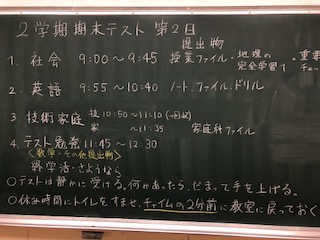 2学期期末テスト 第2日
提出物
1. 社会 9:00〜9:45 授業ファイル・地理の完全学習1 ・重要
2. 英語 9:55〜10:40 ノート、ファイル、ドリル
3 技術家庭 技10:50〜11:10(一回収)
家 〜11:35 家庭科ファイル
4. テスト勉強 11:45〜12:30
<数学・その他提出物>
終学活・さようなら
○テストは静かに受ける。何かあったら、だまって手を上げる。
○休み時間にトイレをすませ、チャイムの2分前に教室に戻っておく